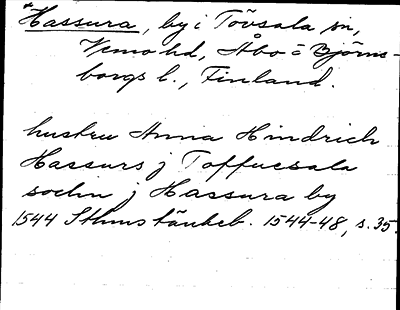 *Hassura, by i Tövsala sn,
Vemo hd, Åbo o Björne-
borgs l., Finland.
hustru Anna Hindrich
Hassurs j Toffuesala
sochn j Hassura by
1544 Sthms tänkeb. 1544-48, s. 35.